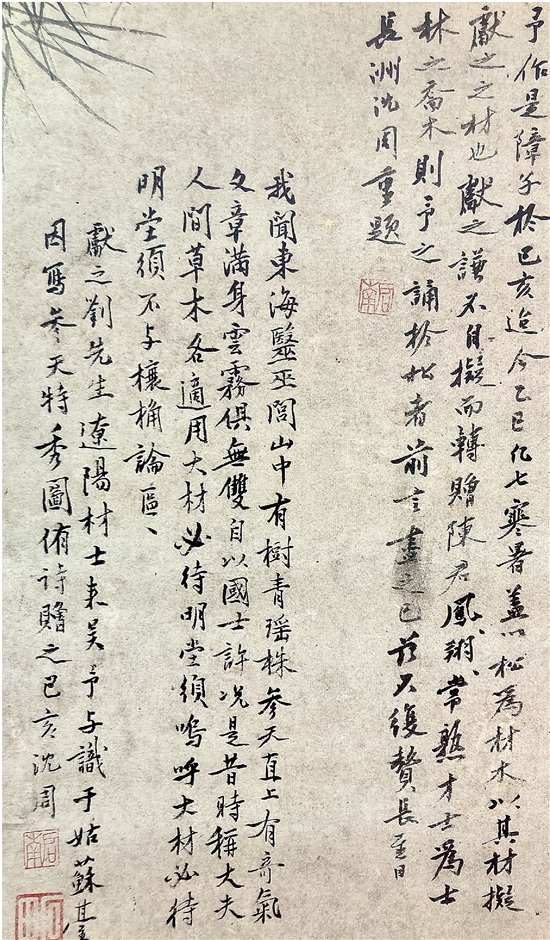 予作是障子於己亥迨今乙巳凡七寒暑蓋以松為材木以其材擬
獻之之材也獻之謙不自擬而轉贈陳君鳳翔常熟才士為士
林之喬木則予之誦於松者前言盡之已茲不復贅長至日
長洲沈周重題
我聞東海毉巫閭山中有樹青瑶株參天直上有奇氣
文章滿身雲霧俱無雙自以國士許况是昔時稱大夫
人間草木各適用大材必待明堂須嗚呼大材必待
明堂須不与欀桷論區丶
獻之劉先生遼陽材士来吴予与識于姑蘇臺
因寫參天特秀圖侑詩贈之己亥沈周
啓南
啓南